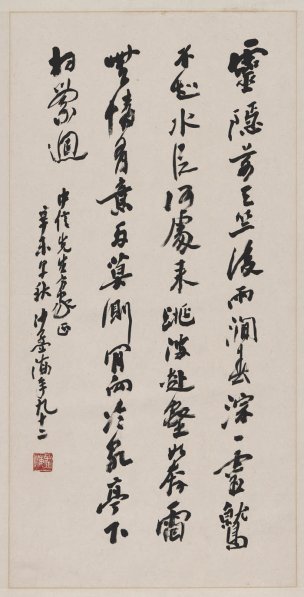 靈隱前天竺後兩澗春淙一靈鷲
不知水從何處來跳波赴壑如奔雷
無情有意兩莫測肯向冷泉亭下
相縈迴
先生方家正
辛未早秋沙孟海年九十二